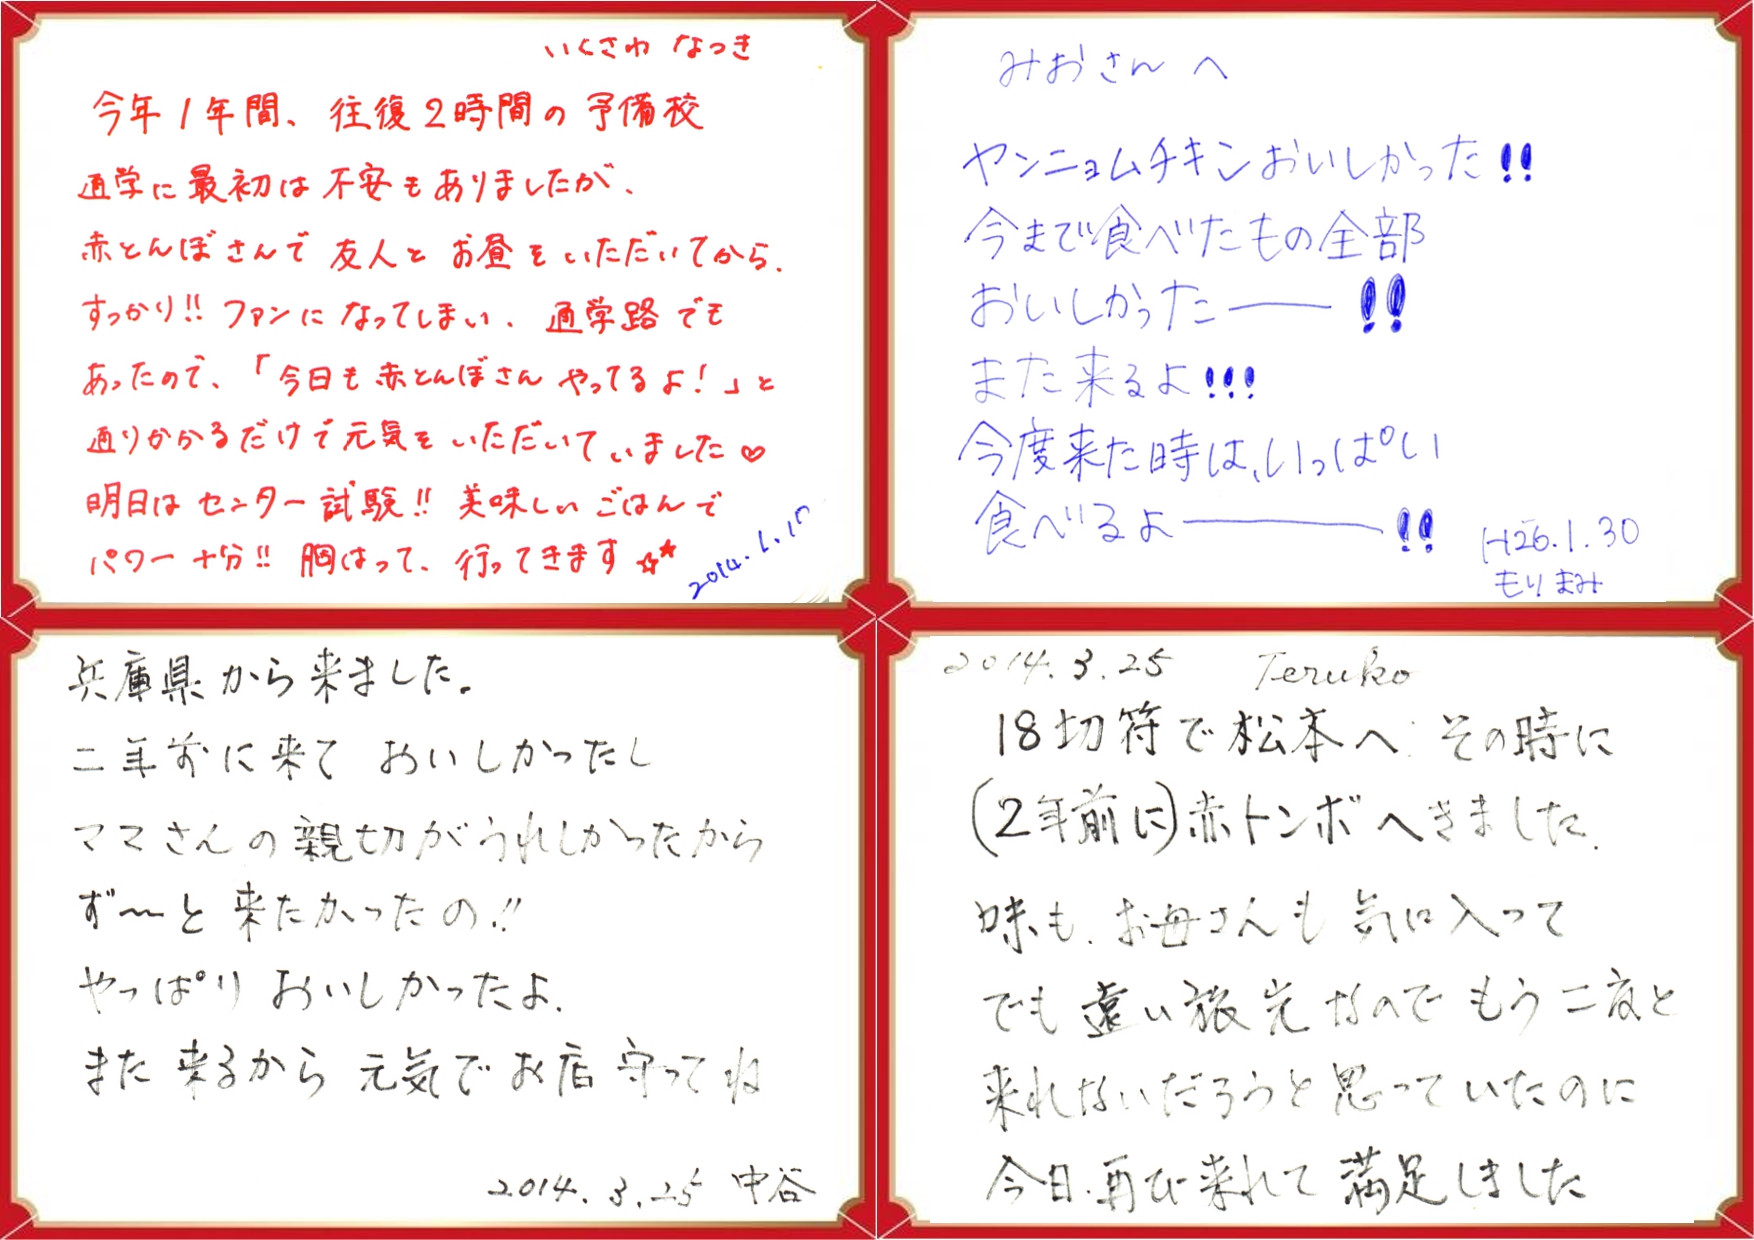 いくさわ なつき
今年1年間、往復2時間の予備校
通学に最初は不安もありましたが、
赤とんぼさんで友人とお昼をいただいてから、
すっかり!!ファンになってしまい、通学路でも
あったので、「今日も赤とんぼさんやってるよ!」と
通りかかるだけで元気をいただいていました♡
明日はセンター試験!!美味しいごはんで
パワー十分!!胸はって、行ってきます☆★
2014.1.17
みおさんへ
ヤンニョムチキンおいしかった!!
今まで食べたもの全部
おいしかったー!!
また来るよ!!!
今度来た時は、いっぱい
食べるよー!!
H26.1.30
もりまみ
兵庫県から来ました。
二年前に来ておいしかったし
ママさんの親切がうれしかったから
ず〜と来たかったの!!
やっぱりおいしかったよ.
また来るから元気でお店守ってね
2014.3.25 中谷
2014.3.25 Teruko
18切符で松本へ その時に
(2年前に)赤トンボへきました.
味も、お母さんも気に入って
でも遠い旅先なのでもう二度と
来れないだろうと思っていたのに
今日、再び来れて満足しました